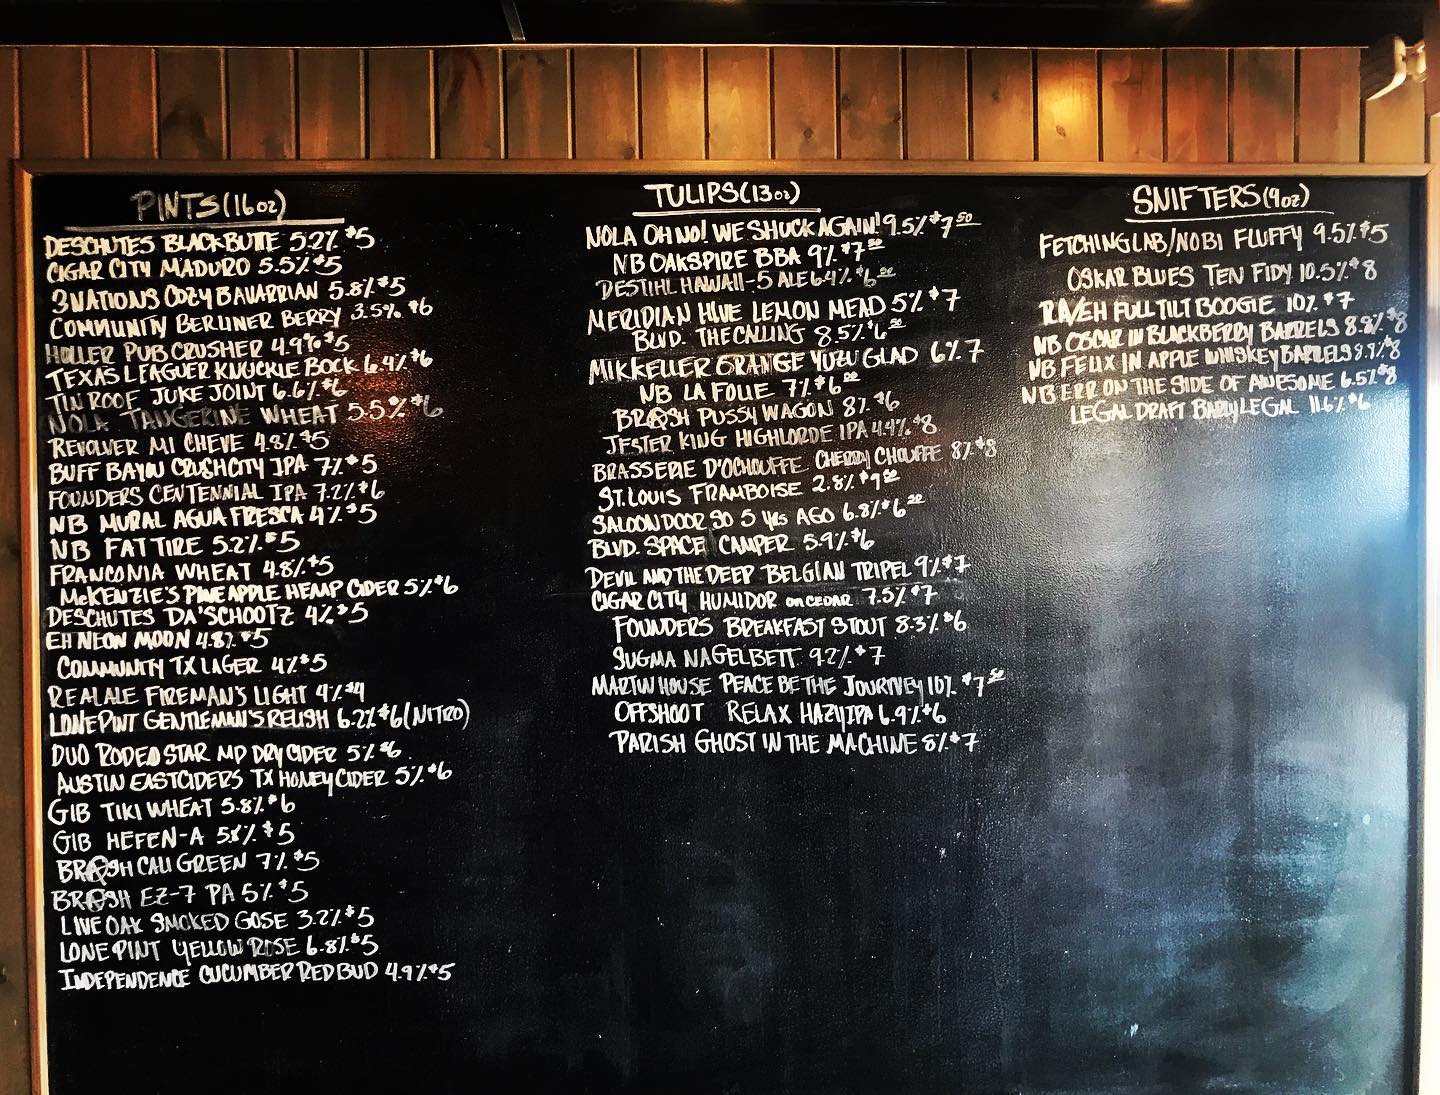 PINTS (16oz)
DESCHUTES BLACK BUTTE 5.2% $5
CIGAR CITY MADURO 5.5% $5
3 NATIONS COZY BAVARRIAN 5.8% $5
COMMUNITY BERLINER BERRY 3.5% $6
HOLLER PUB CRUSHER 4.9% $5
TEXAS LEAGUER KNUCKLE BOCK 6.4% $6
TIN ROOF JUKE JOINT 6.6% $6
NOLA TANGERINE WHEAT 5.5% $6
REVOLVER MI CHEVE 4.8% $5
BUFF BAYOU CRUSH CITY IPA 7% $5
FOUNDERS CENTENNIAL IPA 7.2% $6
NB MURAL AGUA FRESCA 4% $5
NB FAT TIRE 5.2% $5
FRANCONIA WHEAT 4.8% $5
McKENZIE'S PINEAPPLE HEMP CIDER 5% $6
DESCHUTES DA'SCHOOTZ 4% $5
EH NEON MOON 4.8% $5
COMMUNITY TX LAGER 4% $5
REAL ALE FIREMAN'S LIGHT 4% $4
LONE PINT GENTLEMAN'S RELISH 6.2% $6 (NITRO)
DUO RODEO STAR MD DRY CIDER 5% $6
AUSTIN EASTCIDERS TX HONEY CIDER 5% $6
GIB TIKI WHEAT 5.8% $6
GIB HEFEN-A 5.8% $5
BRASH CALI GREEN 7% $5
BRASH EZ-7 PA 5% $5
LIVE OAK SMOKED GOSE 3.2% $5
LONE PINT YELLOW ROSE 6.8% $5
INDEPENDENCE CUCUMBER RED BUD 4.9% $5
TULIPS (13oz)
NOLA OH NO! WE SHUCK AGAIN! 9.5% $7 50
NB OAKSPIRE BBA 9% $7 50
DESTIHL HAWAII-5 ALE 6.4% $6 50
MERIDIAN HIVE LEMON MEAD 5% $7
BLVD. THE CALLING 8.5% $6 50
MIKKELLER ORANGE YUZU GLAD 6% 7
NB LA FOLIE 7% $6 50
BRASH PUSSY WAGON 8% $6
JESTER KING HIGHLORDE IPA 4.4% $8
BRASSERIE D'OCHOUFFE CHERRY CHOUFFE 8% $8
ST. LOUIS FRAMBOISE 2.8% $9 50
SALOON DOOR SO 5 YRS AGO 6.8% $6 50
BLVD. SPACE CAMPER 5.9% $6
DEVIL AND THE DEEP BELGIAN TRIPEL 9% $7
CIGAR CITY HUMIDOR ON CEDAR 7.5% $7
FOUNDERS BREAKFAST STOUT 8.3% $6
SUGMA NAGELBETT 9.2% $7
MARTIN HOUSE PEACE BE THE JOURNEY 10% $7 50
OFFSHOOT RELAX HAZY IPA 6.9% $6
PARISH GHOST IN THE MACHINE 8% $7
SNIFTERS (9oz)
FETCHING LAB/NOBI FLUFFY 9.5% $5
OSKAR BLUES TEN FIDY 10.5% $8
RAVEH FULL TILT BOOGIE 10% $7
NB OSCAR IN BLACKBERRY BARRELS 8.8% $8
NB FELIX IN APPLE WHISKEY BARRELS 8.9% $8
NB ERR ON THE SIDE OF AWESOME 6.5% $8
LEGAL DRAFT BABY LEGAL 11.6% $6